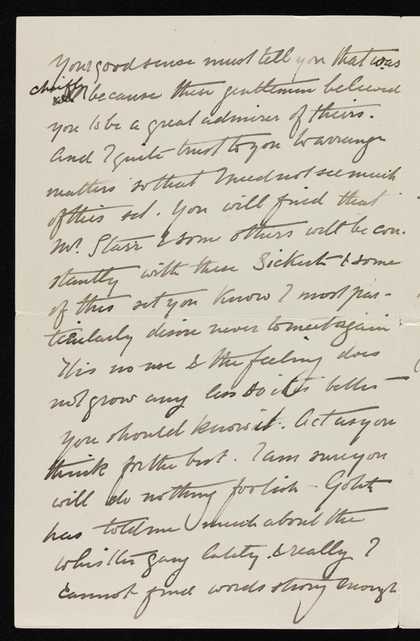 Your good sense must tell you that was
chiefly because these gentlemen believed
you to be a great admirer of theirs.
And I quite trust to you to arrange
matters so that I need not see much
of this set. You will find that
Mr. Starr & some others will be con-
stantly with these Sickert & some
of this set you know I most par-
ticularly desire never to meet again
It is no use & the feeling does
not grow any less so it is better
you should know it. Act as you
think for the best. I am sure you
will do nothing foolish -
has told me much about the
whistler gang lately & really I
cannot find words strong enough